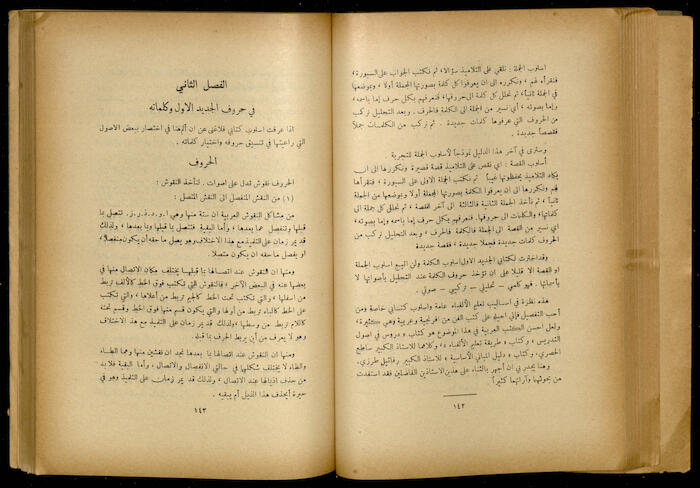 اسلوب الجملة : نلقي على التلاميذ سؤالا، ثم نكتب الجواب على السبورة،
فنقرأه لهم، ونكرره الى ان يعرفوا كل كلمة بصورتها المجملة أولا، وبموضعها
في الجملة ثانياً، ثم نحلل كل كلمة الى حروفها، فنعرفهم بكل حرف إما باسمه،
وإما بصوته، أي نسير من الجملة الى الكلمة فالحرف. وبعد التحليل نركب
من الحروف التي عرفوها كلمات جديدة. ثم نركب من الكلمات جملا
فقصصاً جديدة.
وسترى في آخر هذا الدليل نموذجاً لأسلوب الجملة للتجربة
أسلوب القصة : اي نقص على التلاميذ قصة قصيرة ونكررها الى ان
يكاد التلاميذ يحفظونها غيباً ثم نكتب الجملة الاولى على السبورة، فنقرأها
لهم ونكررها الى ان يعرفوا الكلمة بصورتها المجملة أولا وبموضعها من الجملة
ثانياً، ثم نأخذ الجملة الثانية فالثالثة الى آخر القصة، ثم نحلل كل جملة الى
كلماتها، والكلمات الى حروفها. فنعرفهم بكل حرف إما باسمه وإما بصوته،
اي نسير من القصة الى الجملة فالكلمة فالحرف. وبعد التحليل نركب من
الحروف كلمات جديدة فجملا جديدة، فقصة جديدة
وقد اخترت لكتابي الجديد الاول اسلوب الكلمة ولن اتبع اسلوب الجملة
او القصة الا قليلا على ان تؤخذ حروف الكلمة عند التحليل بأصواتها لا
بأسمائها. فهو كلمي – تحليلي – تركيبي – صوتي.
هذه نظرة في اساليب تعليم الألفباء عامة واسلوب كتابي خاصة ومن
أحب التفصيل فإني احيله على كتب الفن من افرنجية وعربية وهي كثيرة،
ولعل احسن الكتب العربية في هذا الموضوع هو كتاب « دروس في اصول
التدريس » وكتاب « طريقة تعليم الألفباء » وكلاهما للاستاذ الكبير ساطع
الحصري، وكتاب « دليل المباني الأساسية » للاستاذ الكبير رفائيل طرزي.
وهنا يجدر بي ان أجهر بالثناء على هذين الاستاذين الفاضلين فقد استفدت
من بحوثهما وآرائهما كثيراً
١٤٢
الفصل الثاني
في حروف الجديد الاول وكلماته
اذا عرفت اسلوب كتابي فلا غنى عن ان ألم هنا في اختصار ببعض الاصول
التي راعيتها في تنسيق حروفه واختيار كلماته.
الحروف
الحروف نقوش تدل على اصوات. فلنأخذ النقوش :
(١) من النقش المنفصل الى النقش المتصل :
من مشاكل النقوش العربية ان ستة منها وهي ا. و. د. ذ. ر. ز. تتصل بما
قبلها وتنفصل عما بعدها، وأما البقية فتتصل بما قبلها وبما بعدها، ولذلك
قد يمر زمان على التلميذ مع هذا الاختلاف وهو يصل ما حقه أن يكون منفصلا،
او يفصل ما حقه ان يكون متصلا.
ومنها ان النقوش عند اتصالها بما قبلها يختلف مكان الاتصال منها في
بعضها عنه في البعض الآخر، فالنقوش التي تكتب فوق الخط كالألف تربط
من اسفلها، والتي تكتب تحت الخط كالجيم تربط من أعلاها، والتي تكتب
على الخط كالباء تربط من أولها والتي يكون قسم منها فوق الخط وقسم تحته
كاللام تربط من وسطها، ولذلك قد يمر زمان على التلميذ مع هذا الاختلاف
وهو لا يعرف من أين يربط الحرف بما قبله.
ومنها ان النقوش عند اتصالها بما بعدها نجد ان نقشين منها وهما الطاء
والظاء لا يختلف شكلهما في حالتي الانفصال والاتصال، وأما البقية فلا بد
من حذف اذيالها عند الاتصال، ولذلك قد يمر زمان على التلميذ وهو في
حيرة أيحذف هذا الذيل أم يبقيه.
١٤٣